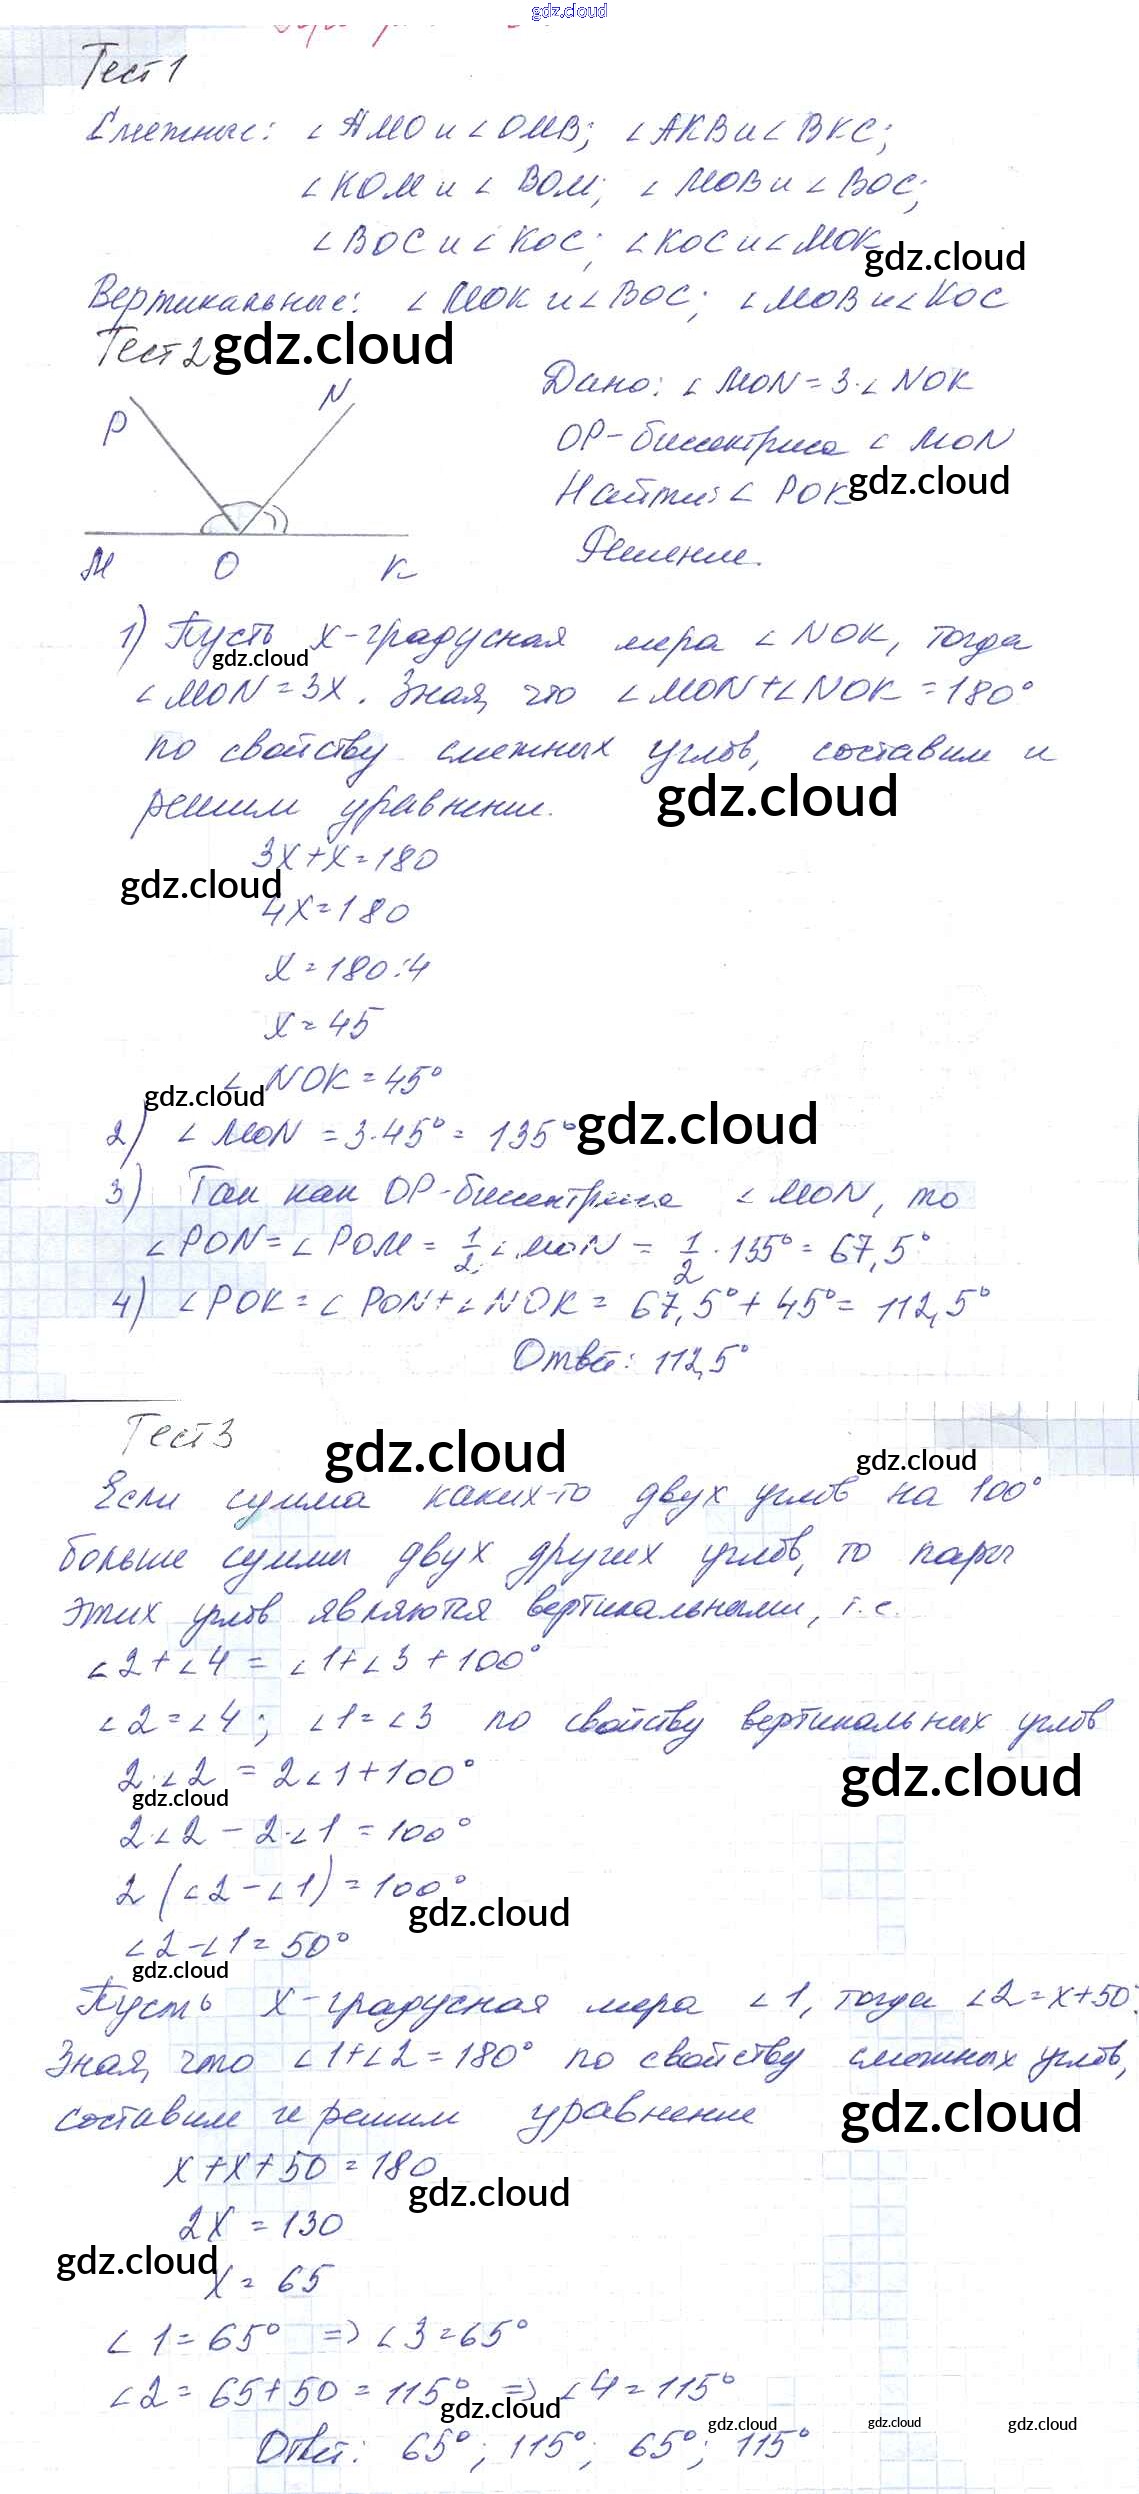 gdz.cloud
Тест 1
Смежные: ∠AMO и ∠OMB; ∠AKB и ∠BKC;
∠KOM и ∠BOM; ∠MOB и ∠BOC;
∠BOC и ∠KOC; ∠KOC и ∠MOK
gdz.cloud
Вертикальные: ∠MOK и ∠BOC; ∠MOB и ∠KOC
Тест 2 gdz.cloud
P N
M O K
Дано: ∠MON = 3·∠NOK
OP-биссектриса ∠MON
Найти: ∠POK gdz.cloud
Решение.
1) Пусть x-градусная мера ∠NOK, тогда
gdz.cloud
∠MON = 3x. Зная, что ∠MON + ∠NOK = 180°
по свойству смежных углов, составим и
решим уравнение. gdz.cloud
3x + x = 180
gdz.cloud
4x = 180
x = 180:4
x = 45
∠NOK = 45°
gdz.cloud
2) ∠MON = 3·45° = 135° gdz.cloud
3) Так как OP-биссектриса ∠MON, то
∠PON = ∠POM = 1/2 ∠MON = 1/2 · 135° = 67,5°
4) ∠POK = ∠PON + ∠NOK = 67,5° + 45° = 112,5°
Ответ: 112,5°
Тест 3
gdz.cloud gdz.cloud
Если сумма каких-то двух углов на 100°
больше суммы двух других углов, то пары
этих углов являются вертикальными, т.е.
∠2 + ∠4 = ∠1 + ∠3 + 100°
∠2 = ∠4; ∠1 = ∠3 по свойству вертикальных углов
2·∠2 = 2∠1 + 100° gdz.cloud
gdz.cloud
2·∠2 - 2·∠1 = 100°
2(∠2 - ∠1) = 100°
gdz.cloud
∠2 - ∠1 = 50°
gdz.cloud
Пусть x-градусная мера ∠1, тогда ∠2 = x + 50°.
Зная, что ∠1 + ∠2 = 180° по свойству смежных углов,
составим и решим уравнение gdz.cloud
x + x + 50 = 180
gdz.cloud
2x = 130
gdz.cloud
x = 65
∠1 = 65° => ∠3 = 65°
∠2 = 65 + 50 = 115° => ∠4 = 115°
gdz.cloud gdz.cloud gdz.cloud gdz.cloud
Ответ: 65°; 115°; 65°; 115°